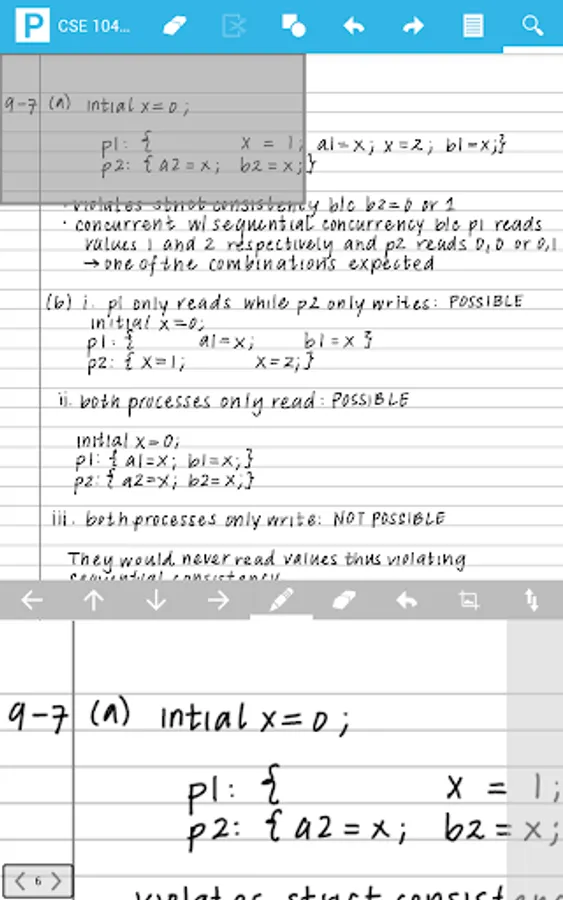 P CSE 104...
9-7 (a) intial x=0;
p1: { x = 1; a1=x; x=2; b1=x;}
p2: { a2=x; b2=x;}
· violates strict consistency b/c b2=0 or 1
· concurrent w/ sequential concurrency b/c p1 reads
values 1 and 2 respectively and p2 reads 0,0 or 0,1
→ one of the combinations expected
(b) i. p1 only reads while p2 only writes: POSSIBLE
initial x=0;
p1: { a1=x; b1=x }
p2: { x=1; x=2;}
ii. both processes only read: POSSIBLE
initial x=0;
p1: { a1=x; b1=x;}
p2: { a2=x; b2=x;}
iii. both processes only write: NOT POSSIBLE
They would never read values thus violating
sequential consistency
9-7 (a) intial x=0;
p1: { x = 1;
p2: { a2=x; b2=x;
6
violates strict consisten